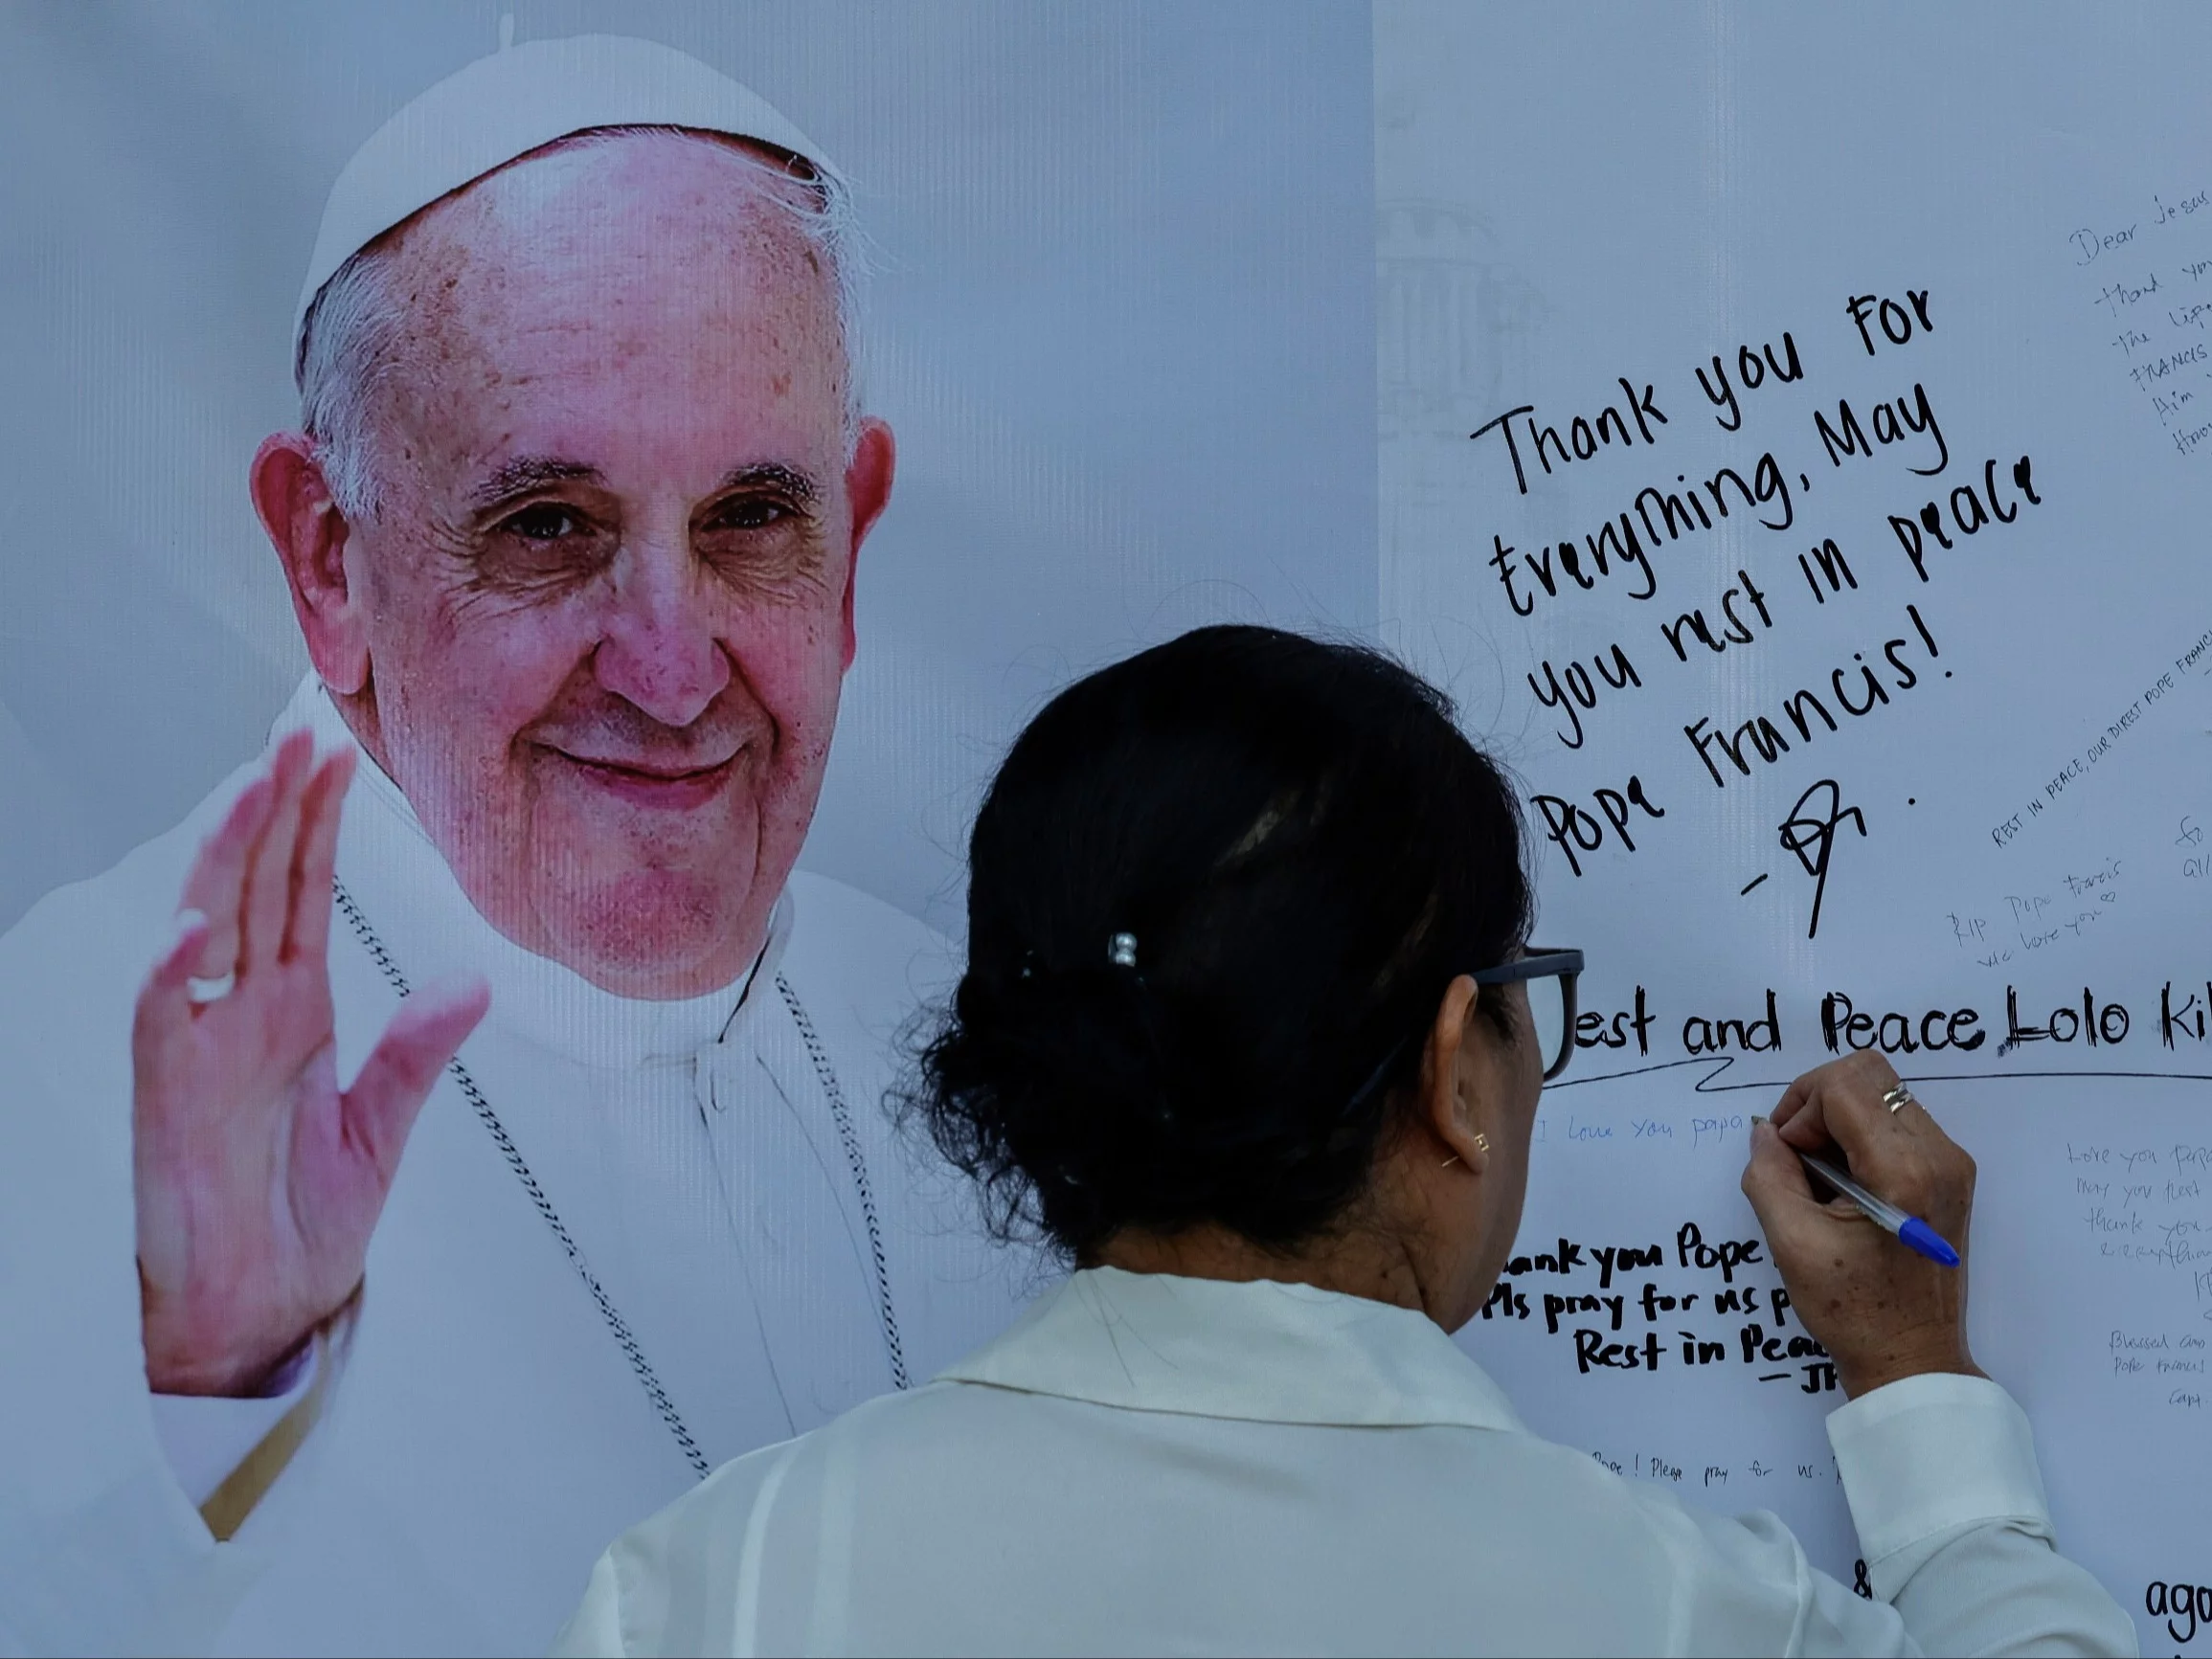 Thank you For
Everything, May
you rest in peace
Pope Francis!
Dear Jesus
Thank you
the
FRANCIS
Him
REST IN PEACE, OUR DIREST POPE FRANCIS
RIP Pope Francis
we love you ♡
est and Peace Lolo Ki
I Love You papa
Love you papa
may you rest
thank you
ank you Pope
Pls pray for us p
Rest in Peac
- JP
Blessed are
Pope Francis
Capt.
Pope! Please pray for us.
&
ago